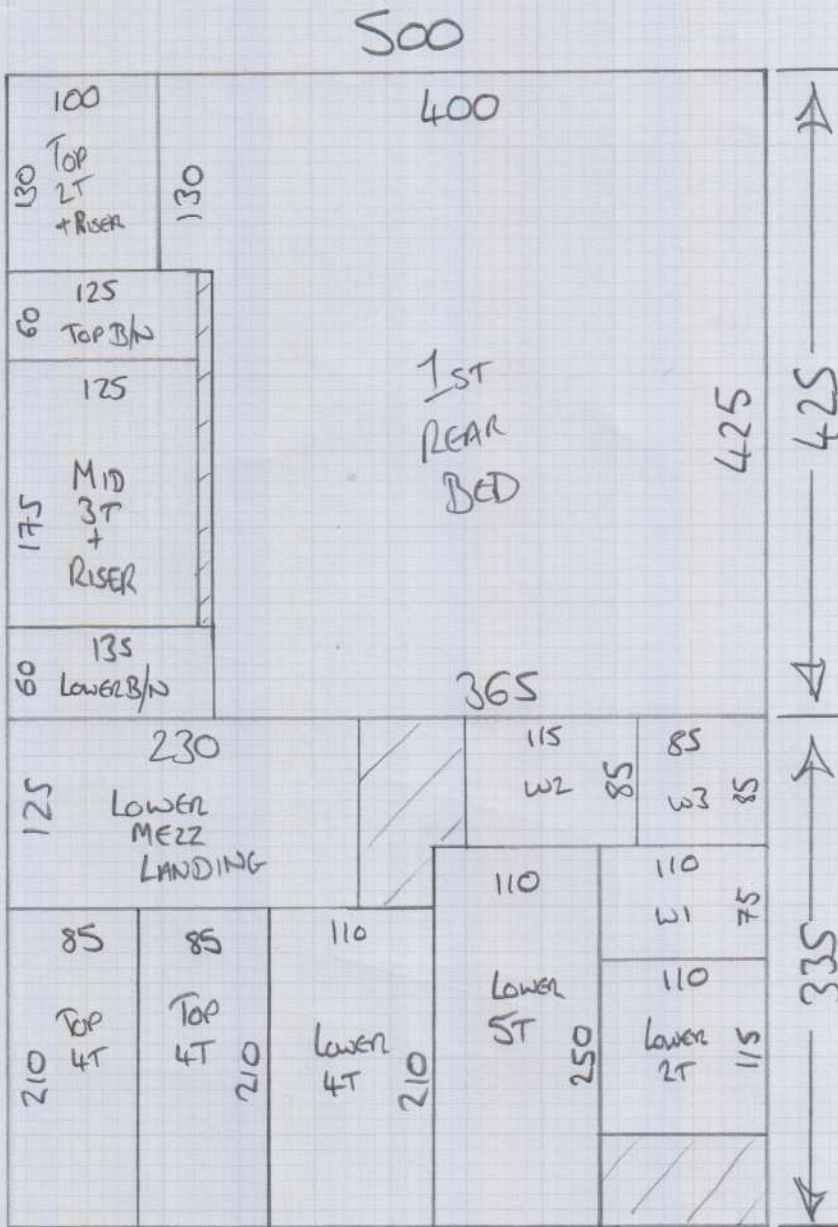 500
100
TOP
2T
+ RISER
130
130
400
125
TOP B/N
60
125
MID
3T
+
RISER
175
135
LOWER B/N
60
1ST
REAR
BED
425
425
365
230
LOWER
MEZZ
LANDING
125
115
W2
85
85
W3
85
110
W1
75
335
85
TOP
4T
210
85
TOP
4T
210
110
LOWER
4T
210
110
LOWER
5T
250
110
LOWER
2T
115